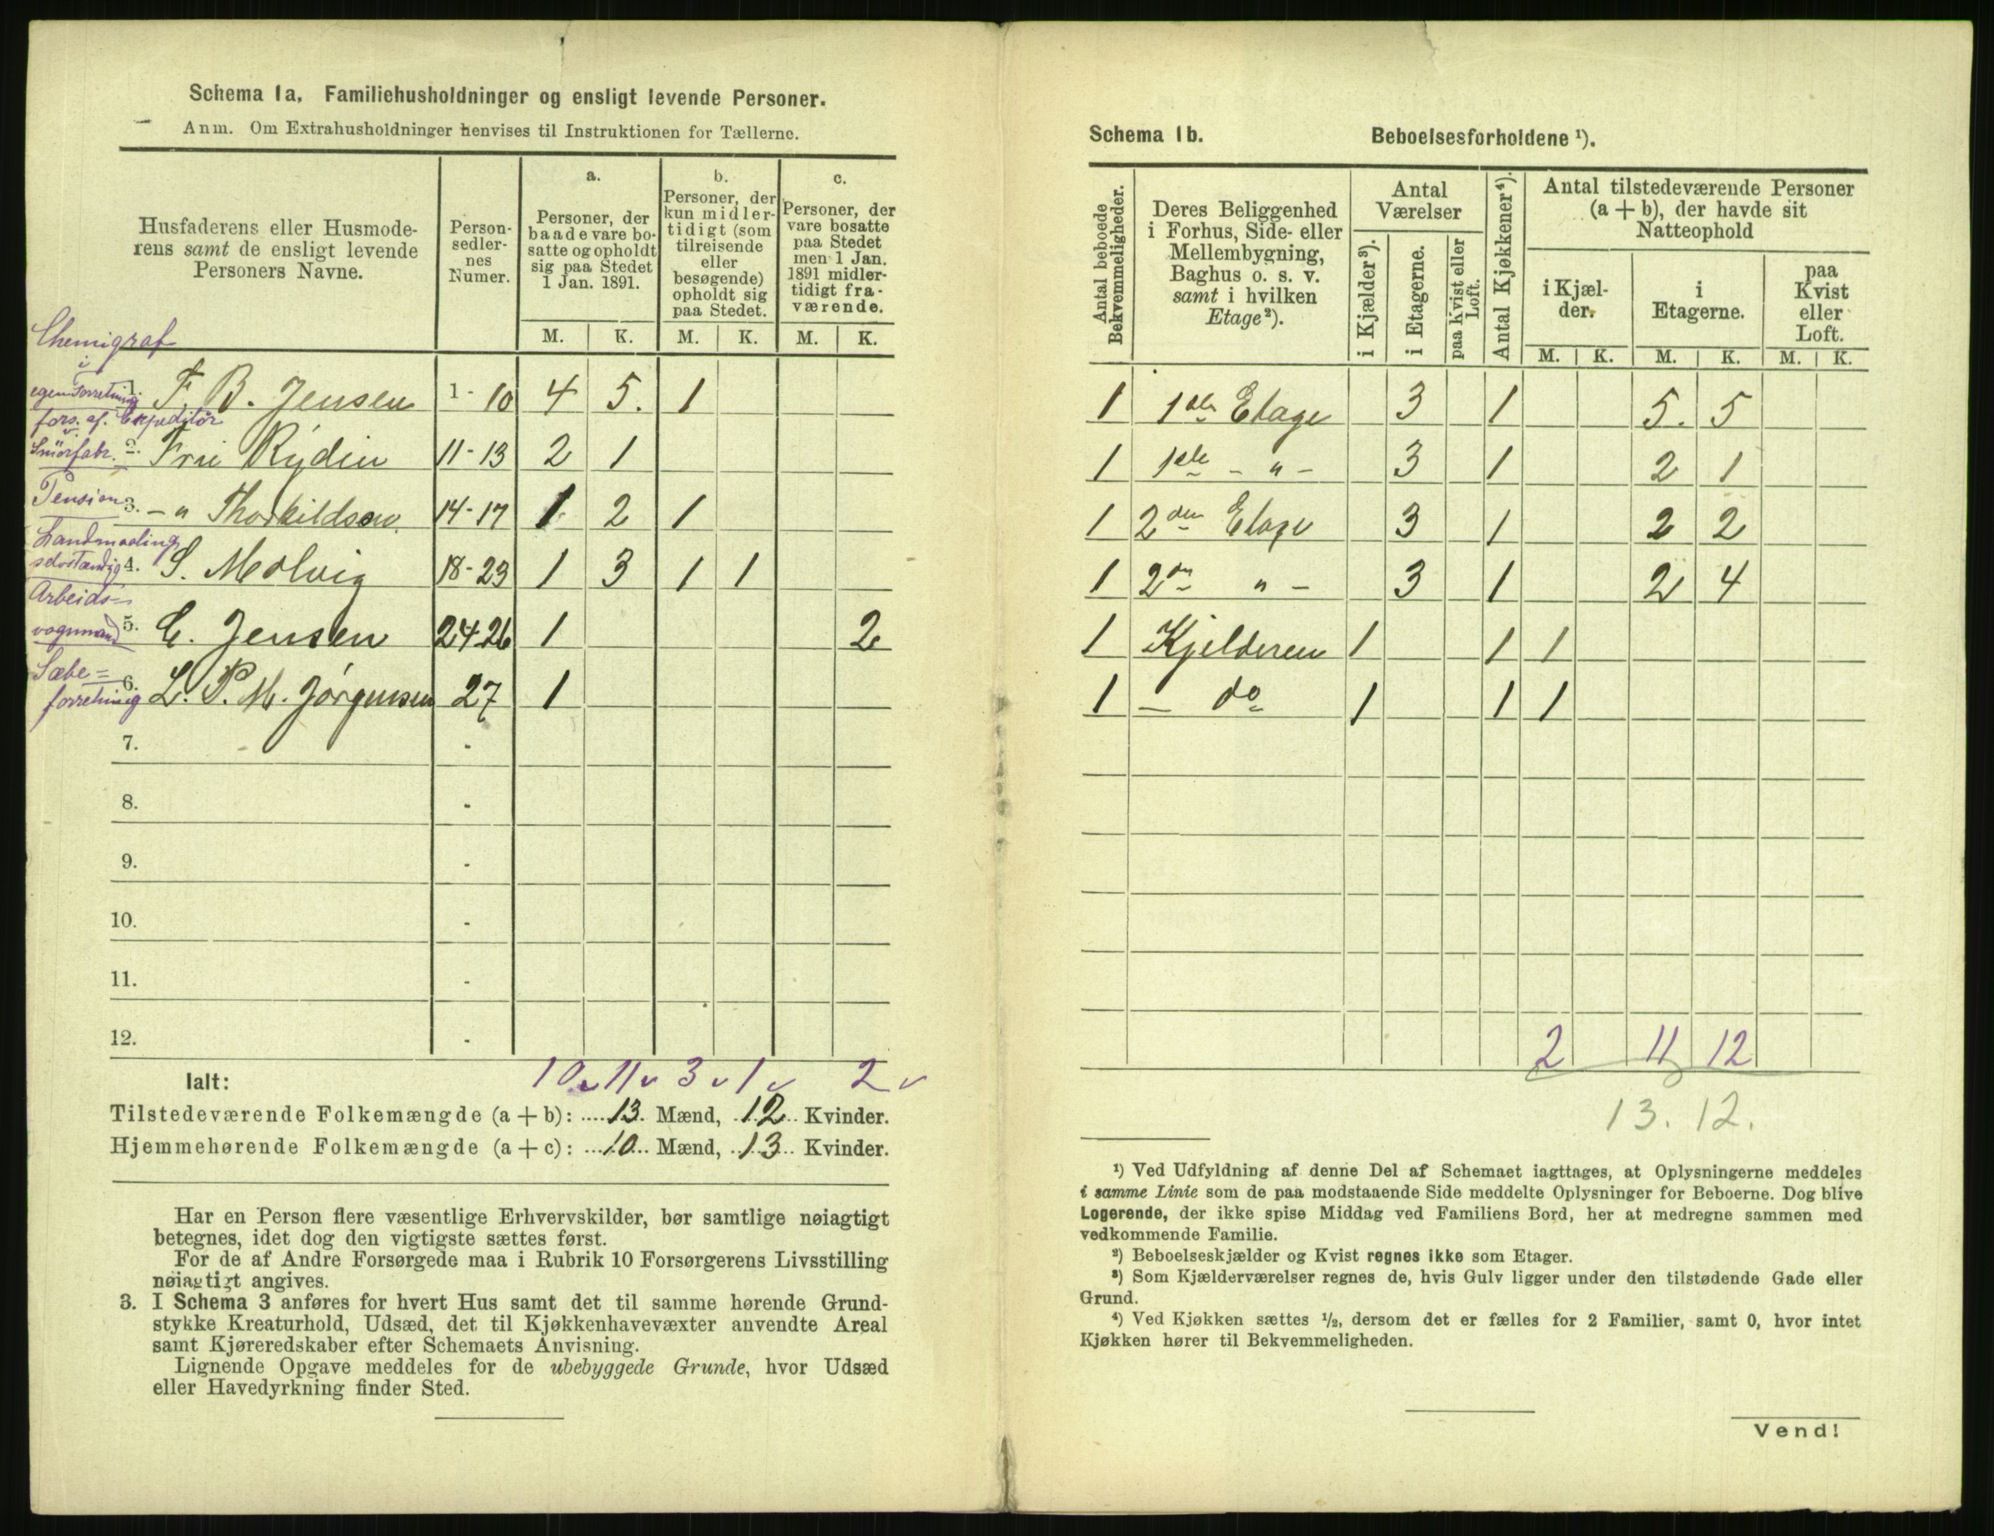 Schema 1a. Familiehusholdninger og ensligt levende Personer.
Anm. Om Extrahusholdninger henvises til Instruktionen for Tællerne.
Husfaderens eller Husmode-
rens samt de ensligt levende
Personers Navne.
Person-
sedler-
nes
Numer.
a.
Personer, der
baade vare bo-
satte og opholdt
sig paa Stedet
1 Jan. 1891.
b.
Personer, der
kun midler-
tidigt (som
tilreisende
eller
besøgende)
opholdt sig
paa Stedet.
c.
Personer, der
vare bosatte
paa Stedet
men 1 Jan.
1891 midler-
tidigt fra-
værende.
M. K. M. K. M. K.
Chemigraf
i
egen Forretning 1. F. B. Jensen 1-10 4 5. 1
fors. af. Expeditør
v.
Snörfabr. 2. Fru Rydin 11-13 2 1
Pension 3. - " Thorkildsen 14-17 1 2 1
Landmaaling
selvstændig 4. S. Molvig 18-23 1 3 1 1
Arbeids-
vognmand 5. C. Jensen 24-26 1 2
Sæbe=
forretning 6. L. P. M. Jørgensen 27 1
7. -
8. -
9. -
10. -
11. -
12. -
Ialt: 10 11 3 1 2
Tilstedeværende Folkemængde (a + b): 13 Mænd, 12 Kvinder.
Hjemmehørende Folkemængde (a + c): 10 Mænd, 13 Kvinder.
Har en Person flere væsentlige Erhvervskilder, bør samtlige nøiagtigt
betegnes, idet dog den vigtigste sættes først.
For de af Andre Forsørgede maa i Rubrik 10 Forsørgerens Livsstilling
nøiagtigt angives.
3. I Schema 3 anføres for hvert Hus samt det til samme hørende Grund-
stykke Kreaturhold, Udsæd, det til Kjøkkenhavevæxter anvendte Areal
samt Kjøreredskaber efter Schemaets Anvisning.
Lignende Opgave meddeles for de ubebyggede Grunde, hvor Udsæd
eller Havedyrkning finder Sted.
Schema 1b. Beboelsesforholdene ¹).
Antal beboede
Bekvemmeligheder.
Deres Beliggenhed
i Forhus, Side- eller
Mellembygning,
Baghus o. s. v.
samt i hvilken
Etage²).
Antal
Værelser
i Kjælder³).
i Etagerne.
paa Kvist eller
Loft.
Antal Kjøkkener⁴).
Antal tilstedeværende Personer
(a + b), der havde sit
Natteophold
i Kjæl-
der.
i
Etagerne.
paa
Kvist
eller
Loft.
M. K. M. K. M. K.
1 1ste Etage 3 1 5. 5
1 1ste - " - 3 1 2 1
1 2den Etage 3 1 2 2
1 2den " - 3 1 2 4
1 Kjelderen 1 1 1
1 - do 1 1 1
2 11 12
13. 12.
¹) Ved Udfyldning af denne Del af Schemaet iagttages, at Oplysningerne meddeles
i samme Linie som de paa modstaaende Side meddelte Oplysninger for Beboerne. Dog blive
Logerende, der ikke spise Middag ved Familiens Bord, her at medregne sammen med
vedkommende Familie.
²) Beboelseskjælder og Kvist regnes ikke som Etager.
³) Som Kjælderværelser regnes de, hvis Gulv ligger under den tilstødende Gade eller
Grund.
⁴) Ved Kjøkken sættes ¹/₂, dersom det er fælles for 2 Familier, samt 0, hvor intet
Kjøkken hører til Bekvemmeligheden.
Vend!